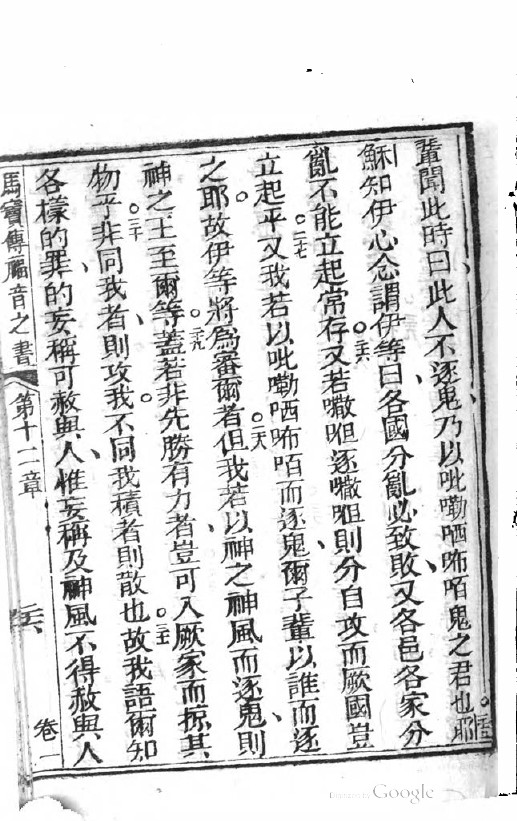 輩聞此時曰此人不逐鬼乃以呲嘞哂咘咟鬼之君也。二五耶
穌知伊心念謂伊等曰各國分亂必致敗又各邑各家分
亂不能立起常存。二六又若㘔呾逐㘔呾則分自攻而厥國豈
立起乎。二七又我若以呲嘞哂咘咟而逐鬼、爾子輩以誰而逐
之耶。故伊等將為審爾者。二八但我若以神之神風而逐鬼、則
神之王至爾等。二九蓋若非先勝有力者、豈可入厥家而掠其
物乎。三十非同我者、則攻我。不同我積者則散也。三十一故我語爾知
各樣的罪、的妄稱可赦與人、惟妄稱及神風不得赦與人
馬竇傳福音之書
第十二章
卷一
Google